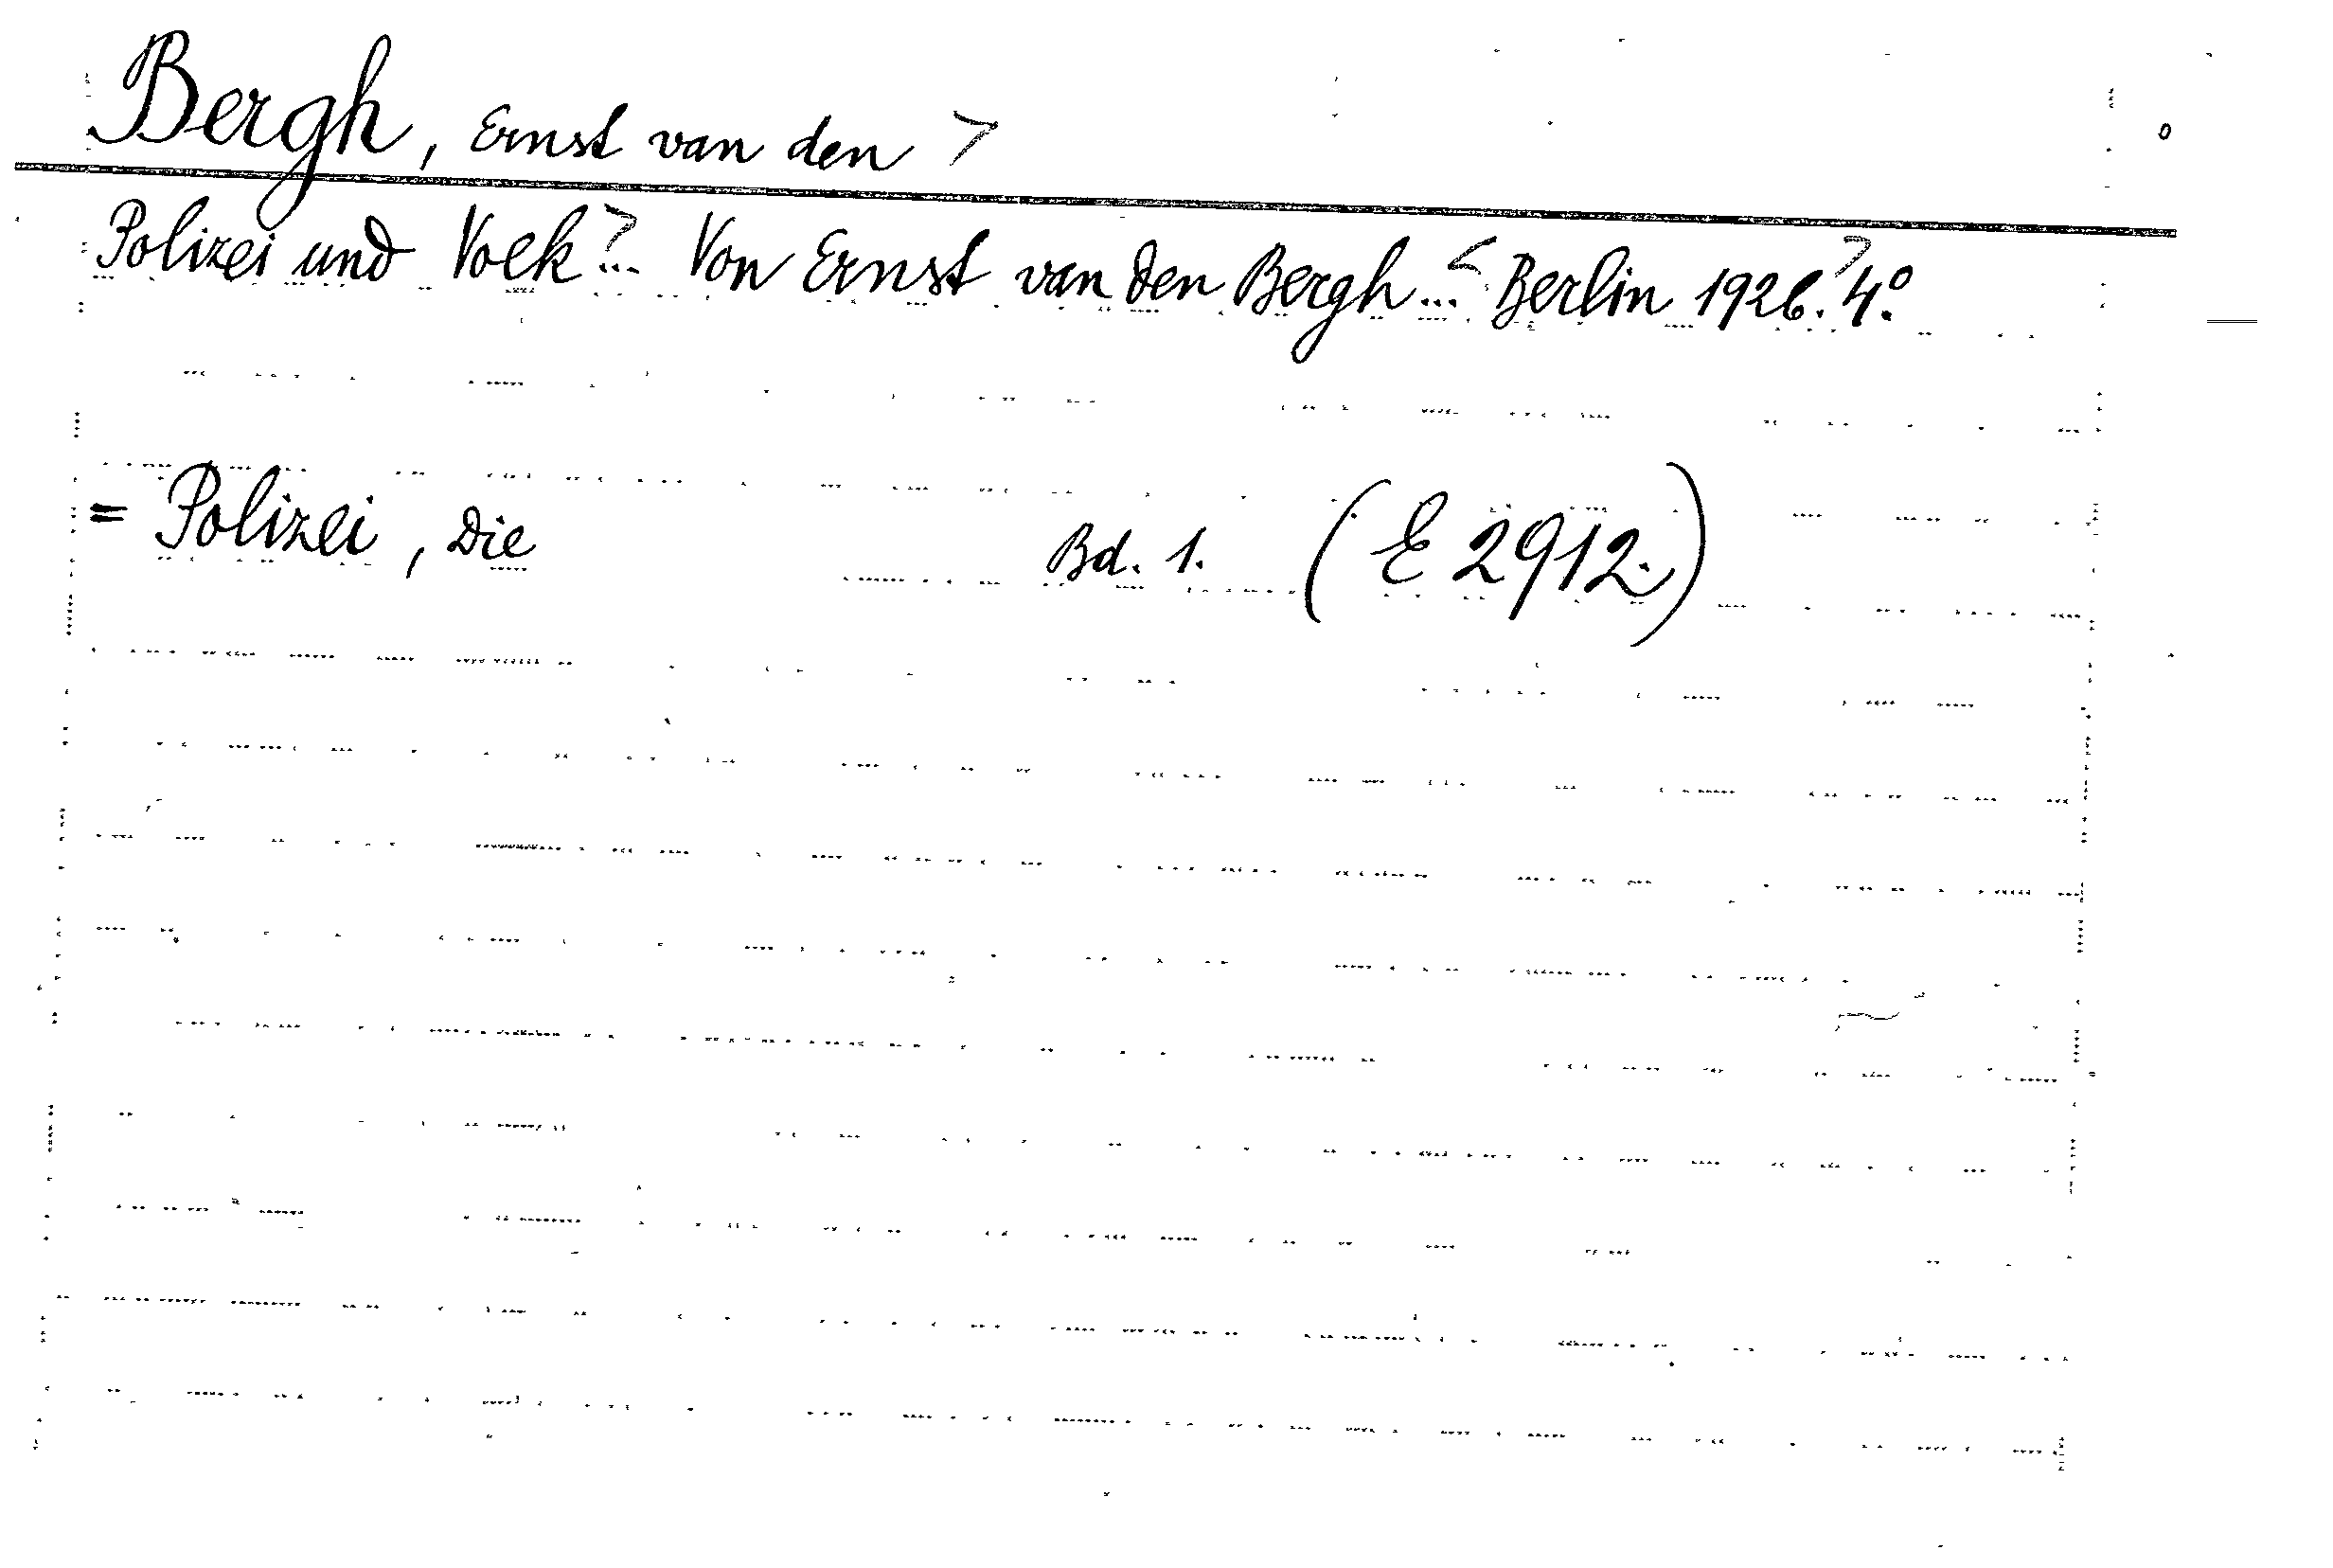 Bergh, Ernst van den >
Polizei und Volk?... Von Ernst van den Bergh...< Berlin 1926.? 4°.
= Polizei, Die Bd. 1. (E 2912.)